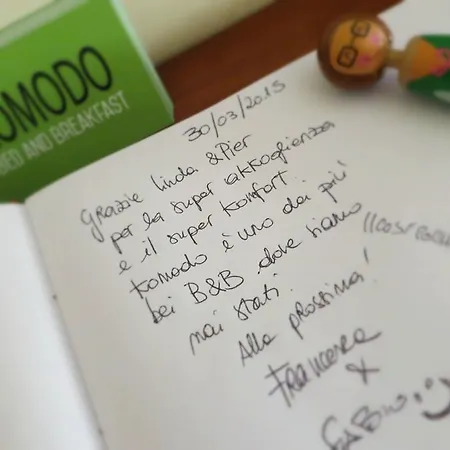 OMODO
BED AND BREAKFAST
30/03/2015
Grazie Linda & Pier
per la super akkoglienza
e il super komfort.
Komodo è uno dei più
bei B&B dove siamo
mai stati.
Alla prossima!
Francesca
&
Fabio :)